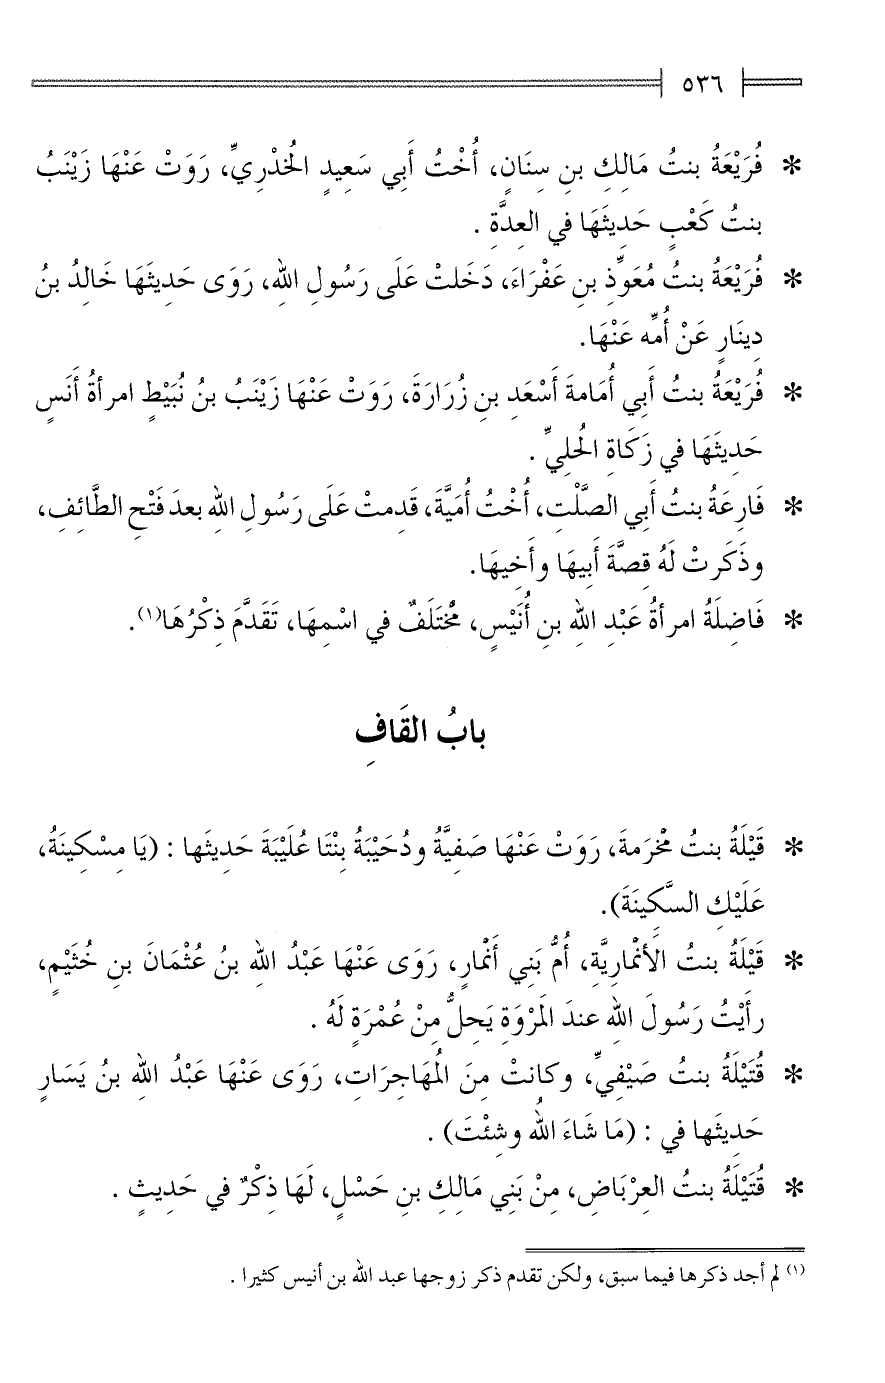 ٥٣٦
* فُرَيْعَةُ بنتُ مَالِكِ بنِ سِنَانٍ، أُخْتُ أَبِي سَعِيدٍ الخُدْرِيِّ، رَوَتْ عَنْهَا زَيْنَبُ
بنتُ كَعْبٍ حَدِيثَهَا في العِدَّةِ .
* فُرَيْعَةُ بنتُ مُعَوِّذِ بنِ عَفْرَاءَ، دَخَلتْ عَلَى رَسُولِ اللهِ، رَوَى حَدِيثَهَا خَالدُ بنُ
دِينَارٍ عَنْ أُمِّه عَنْهَا.
* فُرَيْعَةُ بنتُ أَبي أُمَامةَ أَسْعَدِ بنِ زُرَارَةَ، رَوَتْ عَنْهَا زَيْنَبُ بنُ نُبَيْطٍ امرأةُ أَنَسٍ
حَدِيثَهَا في زَكَاةِ الحُليِّ .
* فَارِعَةُ بنتُ أَبي الصَّلْتِ، أُخْتُ أُمَيَّةَ، قَدِمتْ عَلَى رَسُولِ اللهِ بعدَ فَتْحِ الطَّائفِ،
وذَكَرتْ لَهُ قِصَّةَ أَبيهَا وأَخِيهَا.
* فَاضِلَةُ امرأةُ عَبْدِ اللهِ بنِ أُنَيْسٍ، مُخْتَلَفٌ في اسْمِهَا، تَقَدَّمَ ذِكْرُهَا(١).
بابُ القَافِ
* قَيْلَةُ بنتُ مَخْرَمةَ، رَوَتْ عَنْهَا صَفِيَّةُ ودُحَيْبَةُ بِنْتَا عُلَيْبَةَ حَدِيثَها : (يَا مِسْكِينَةُ،
عَلَيْكِ السَّكِينَةَ).
* قَيْلَةُ بنتُ الأَنْمَارِيَّةِ، أُمُّ بَنِي أَنْمَارٍ، رَوَى عَنْهَا عَبْدُ اللهِ بنُ عُثْمَانَ بنِ خُثَيْمٍ،
رأَيْتُ رَسُولَ اللهِ عندَ المَرْوَةِ يَحِلُّ مِنْ عُمْرَةٍ لَهُ .
* قُتَيْلَةُ بنتُ صَيْفِيٍّ، وكانتْ مِنَ المُهَاجِرَاتِ، رَوَى عَنْهَا عَبْدُ اللهِ بنُ يَسَارٍ
حَدِيثَها في : (مَا شَاءَ اللهُ وشِئْتَ) .
* قُتَيْلَةُ بنتُ العِرْبَاضِ، مِنْ بَنِي مَالِكِ بنِ حَسْلٍ، لَهَا ذِكْرٌ في حَدِيثٍ .
(١) لم أجد ذكرها فيما سبق، ولكن تقدم ذكر زوجها عبد الله بن أنيس كثيرا .